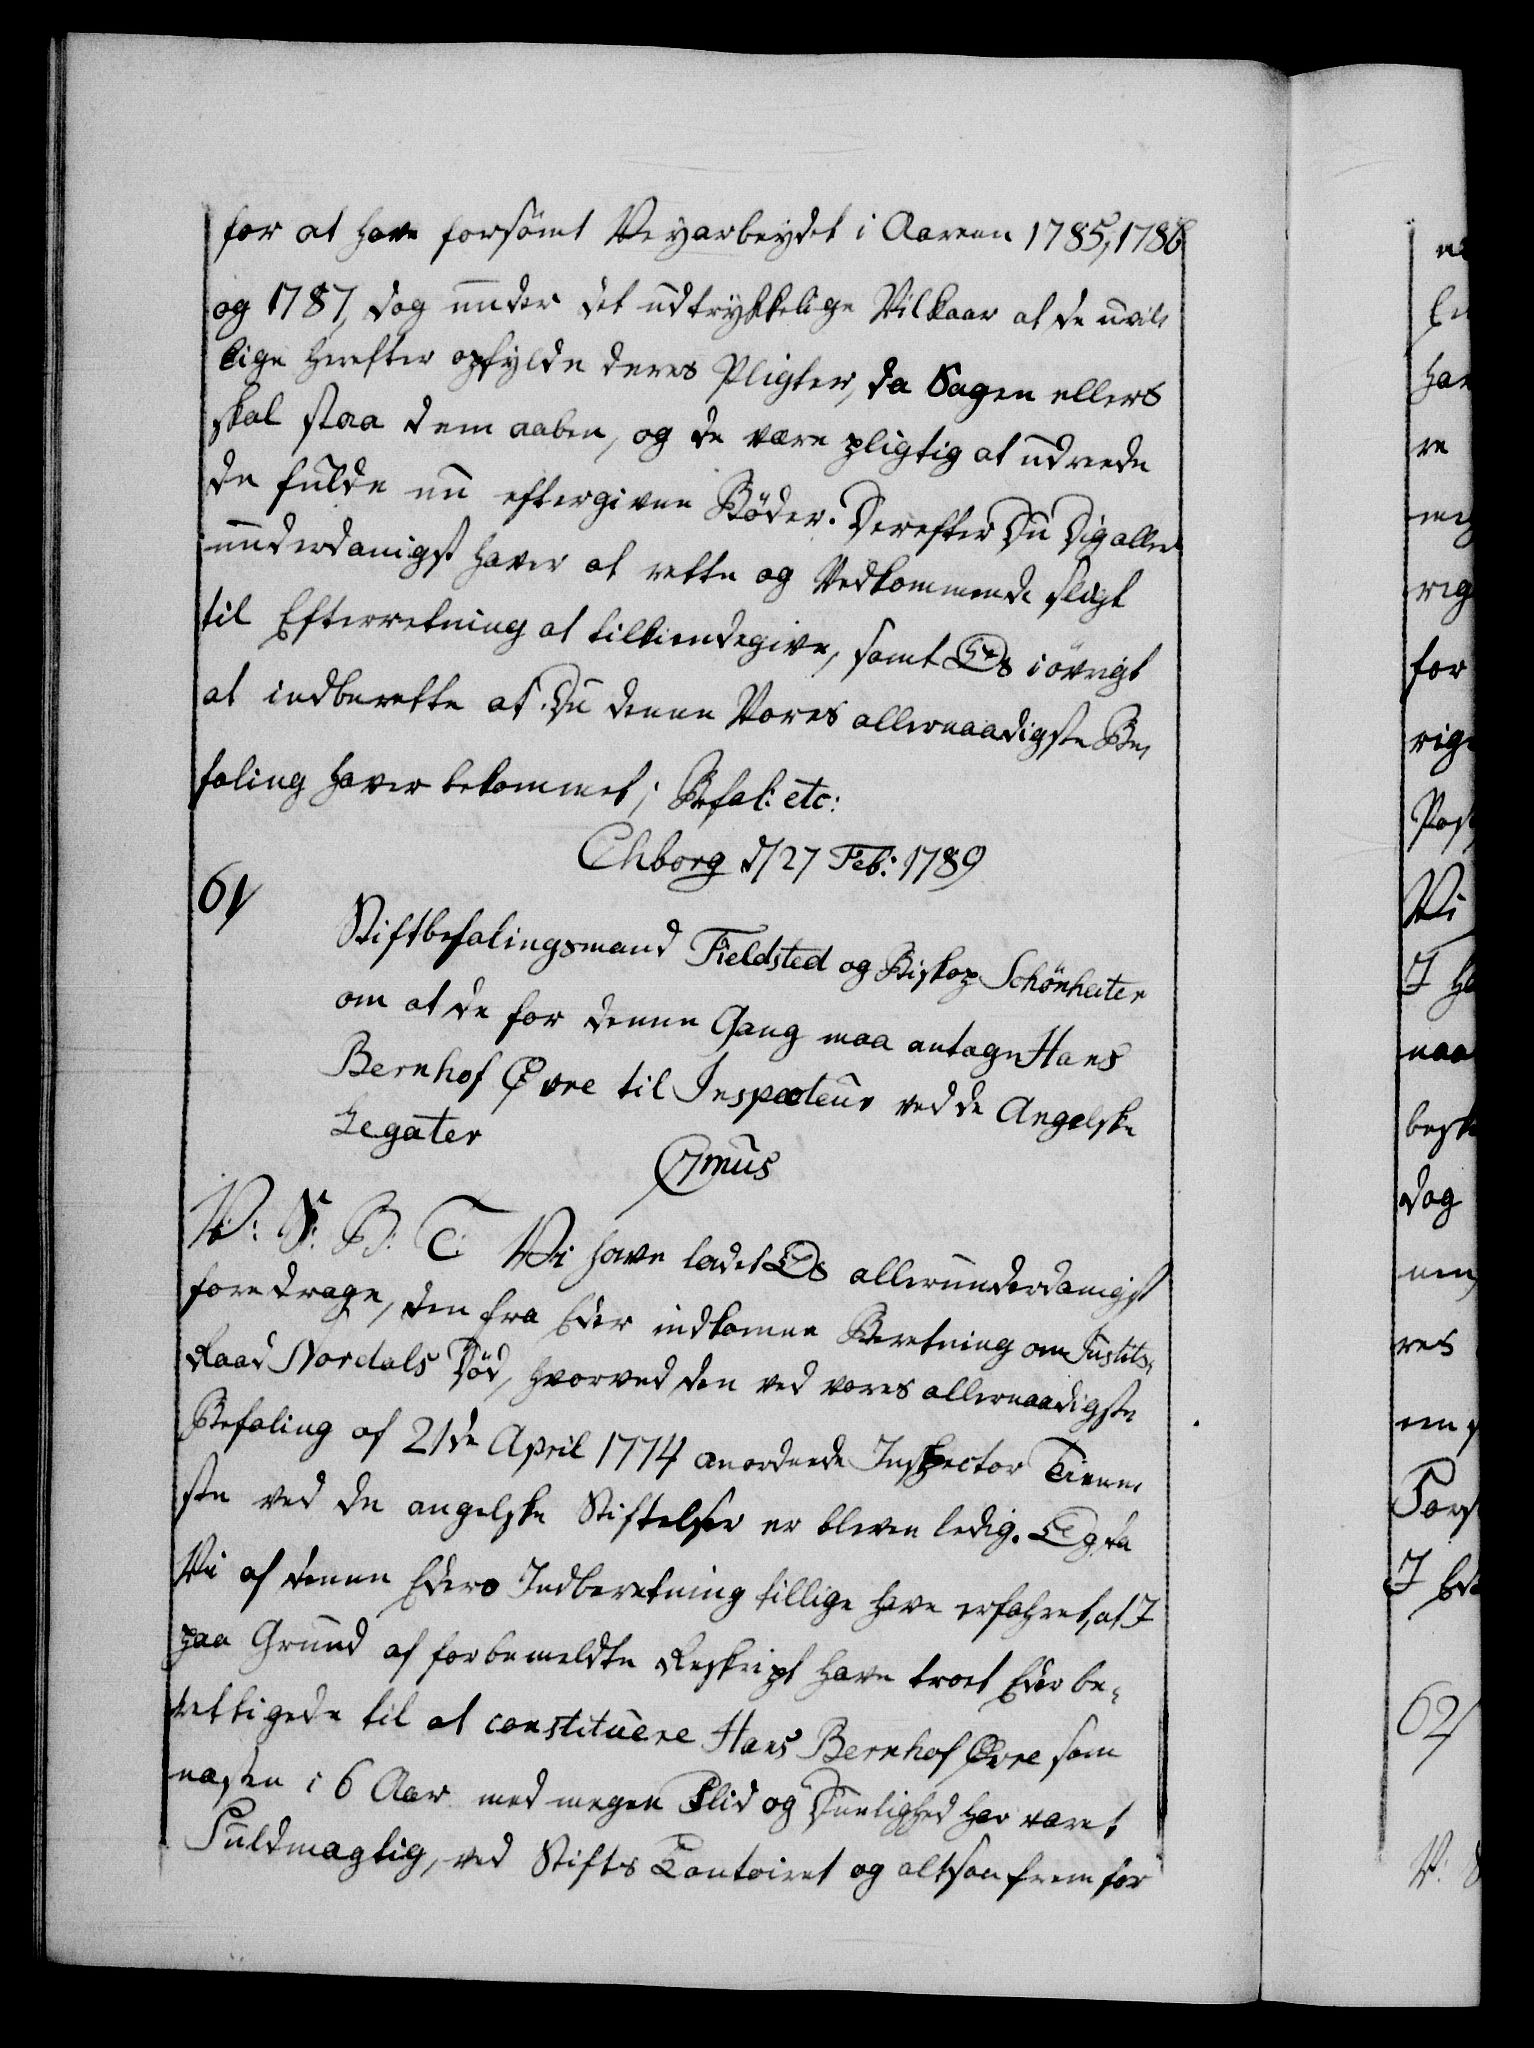 for at have forsömt Veyarbeydet i Aarene 1785, 1786
og 1787, dog under det udtrykkelige Vilkaar at de uvil
lige herefter opfylde deres Pligter, da Sagen ellers
skal staa dem aaben, og de være pligtig at udrede
de fulde nu eftergivne Böder. Derefter Du Dig aller
underdanigst haver at rette og Vedkommende sligt
til Efterretning at tilkiendegive, samt Os iövrigt
at indberette at Du denne Vores allernaadigste Be,
faling haver bekommet; Befal: etc:
Chborg d/27 Feb: 1789
61/
Stiftbefalingsmand Fieldsted og Biskop Schönheiter
om at de for denne Gang maa antage Hans
Bernhof Øvre til Inspecteur ved de Angelske
Legater
C7mus
V: S: B: T: Vi have ladet Os allerunderdanigst
foredrage, den fra Eder indkomne Beretning om Justits,
Raad Nordals Död, hvorved den ved vores allernaadigste
Befaling af 21de April 1774 anordnede Inspector Tiene,
ste ved de angelske Stiftelser er bleven ledig. Og da
Vi af denne Eders Indberetning tillige have erfahret, at I
paa Grund af forbemeldte Reskript have troet Eder be,
rettigede til at constituere Hans Bernhof Øvre som
næsten i 6 Aar med megen Flid og Duelighed har været
Fuldmægtig, ved Stifts Contoiret og altsaa frem for
for
Vi
dog
res
62/